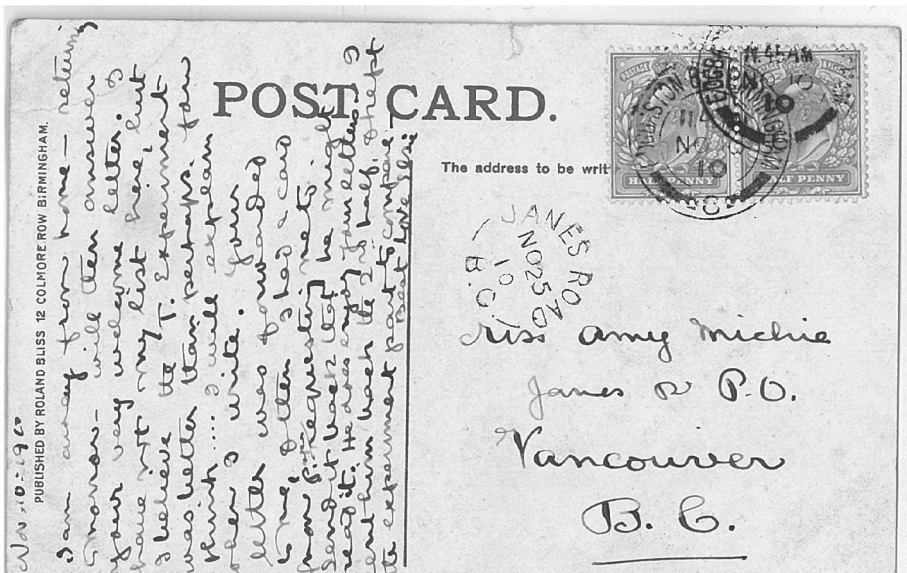 POST CARD.
The address to be writ
HALF PENNY
HALF PENNY
11.45AM
NO 10
10
JANES ROAD
NO 25
10
B.C.
Miss Amy Michie
Janes R P.O.
Vancouver
B. C.
PUBLISHED BY ROLAND BLISS 12 COLMORE ROW BIRMINGHAM.
Nov. 10-1910
I am away from home - returning
tomorrow - will then answer
your very welcome letter. I
have not my list here, but
I believe the T. Experiment
was better than perhaps you
think.... I will explain
when I write. Your
letter was forwarded
to me, after I had a card
from P. requesting me to
send it back that he might
read it. He does enjoy your letters. I
sent him back the 2nd half, & kept
the experiment part to compare.
Best love Elsie